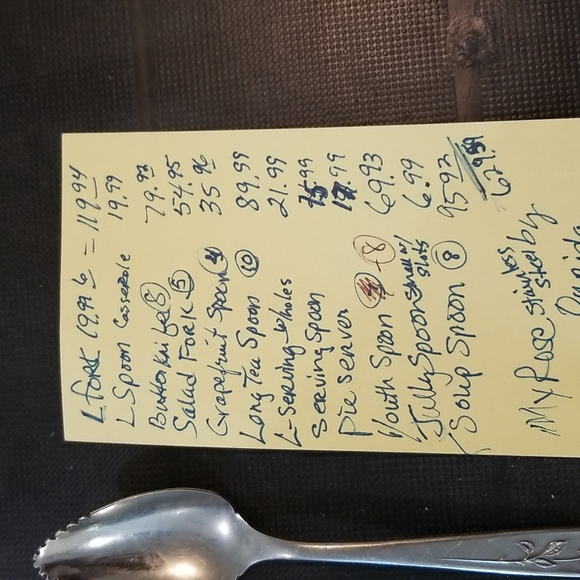 L FORK 19.99 6 = 119.94
L Spoon Casserole 19.99
Butter Knife 8 79.92
Salad Fork 5 54.95
Grapefruit Spoon 4 35.96
Long Tea Spoon 10 89.99
L-Serving w/holes 21.99
Serving Spoon 15.99
Pie server 17.99
Youth Spoon 8 69.93
Jelly Spoon Small w/ slots 6.99
Soup Spoon 8 95.92
629.59
My Rose stainless steel by